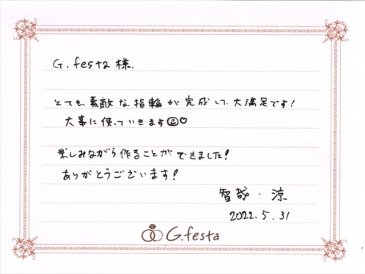 G.festa 様.
とても素敵な指輪が完成して、大満足です!
大事に使っていきます♡
楽しみながら作ることができました!
ありがとうございます!
智哉・涼
2022.5.31
G.festa